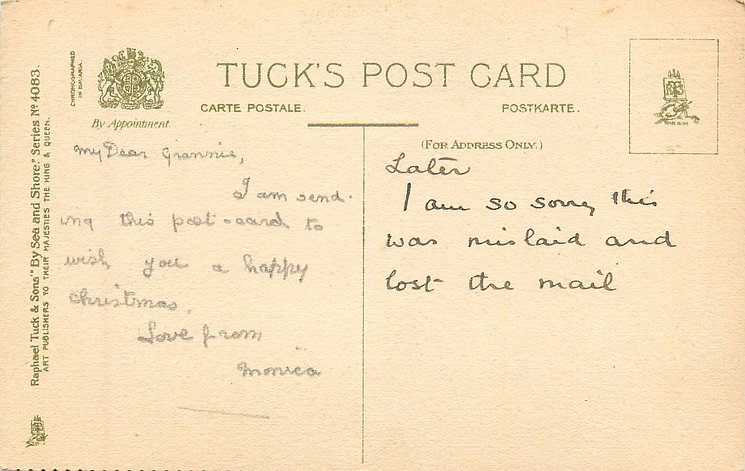 TUCK'S POST CARD
CARTE POSTALE.
POSTKARTE.
CHROMOGRAPHED
IN BAVARIA.
By Appointment
(FOR ADDRESS ONLY.)
Raphael Tuck & Sons' "By Sea and Shore." Series No 4083.
ART PUBLISHERS TO THEIR MAJESTIES THE KING & QUEEN.
My Dear Grannie,
I am send-
ing this post-card to
wish you a happy
christmas.
Love from
Monica
Later
I am so sorry this
was mislaid and
lost the mail